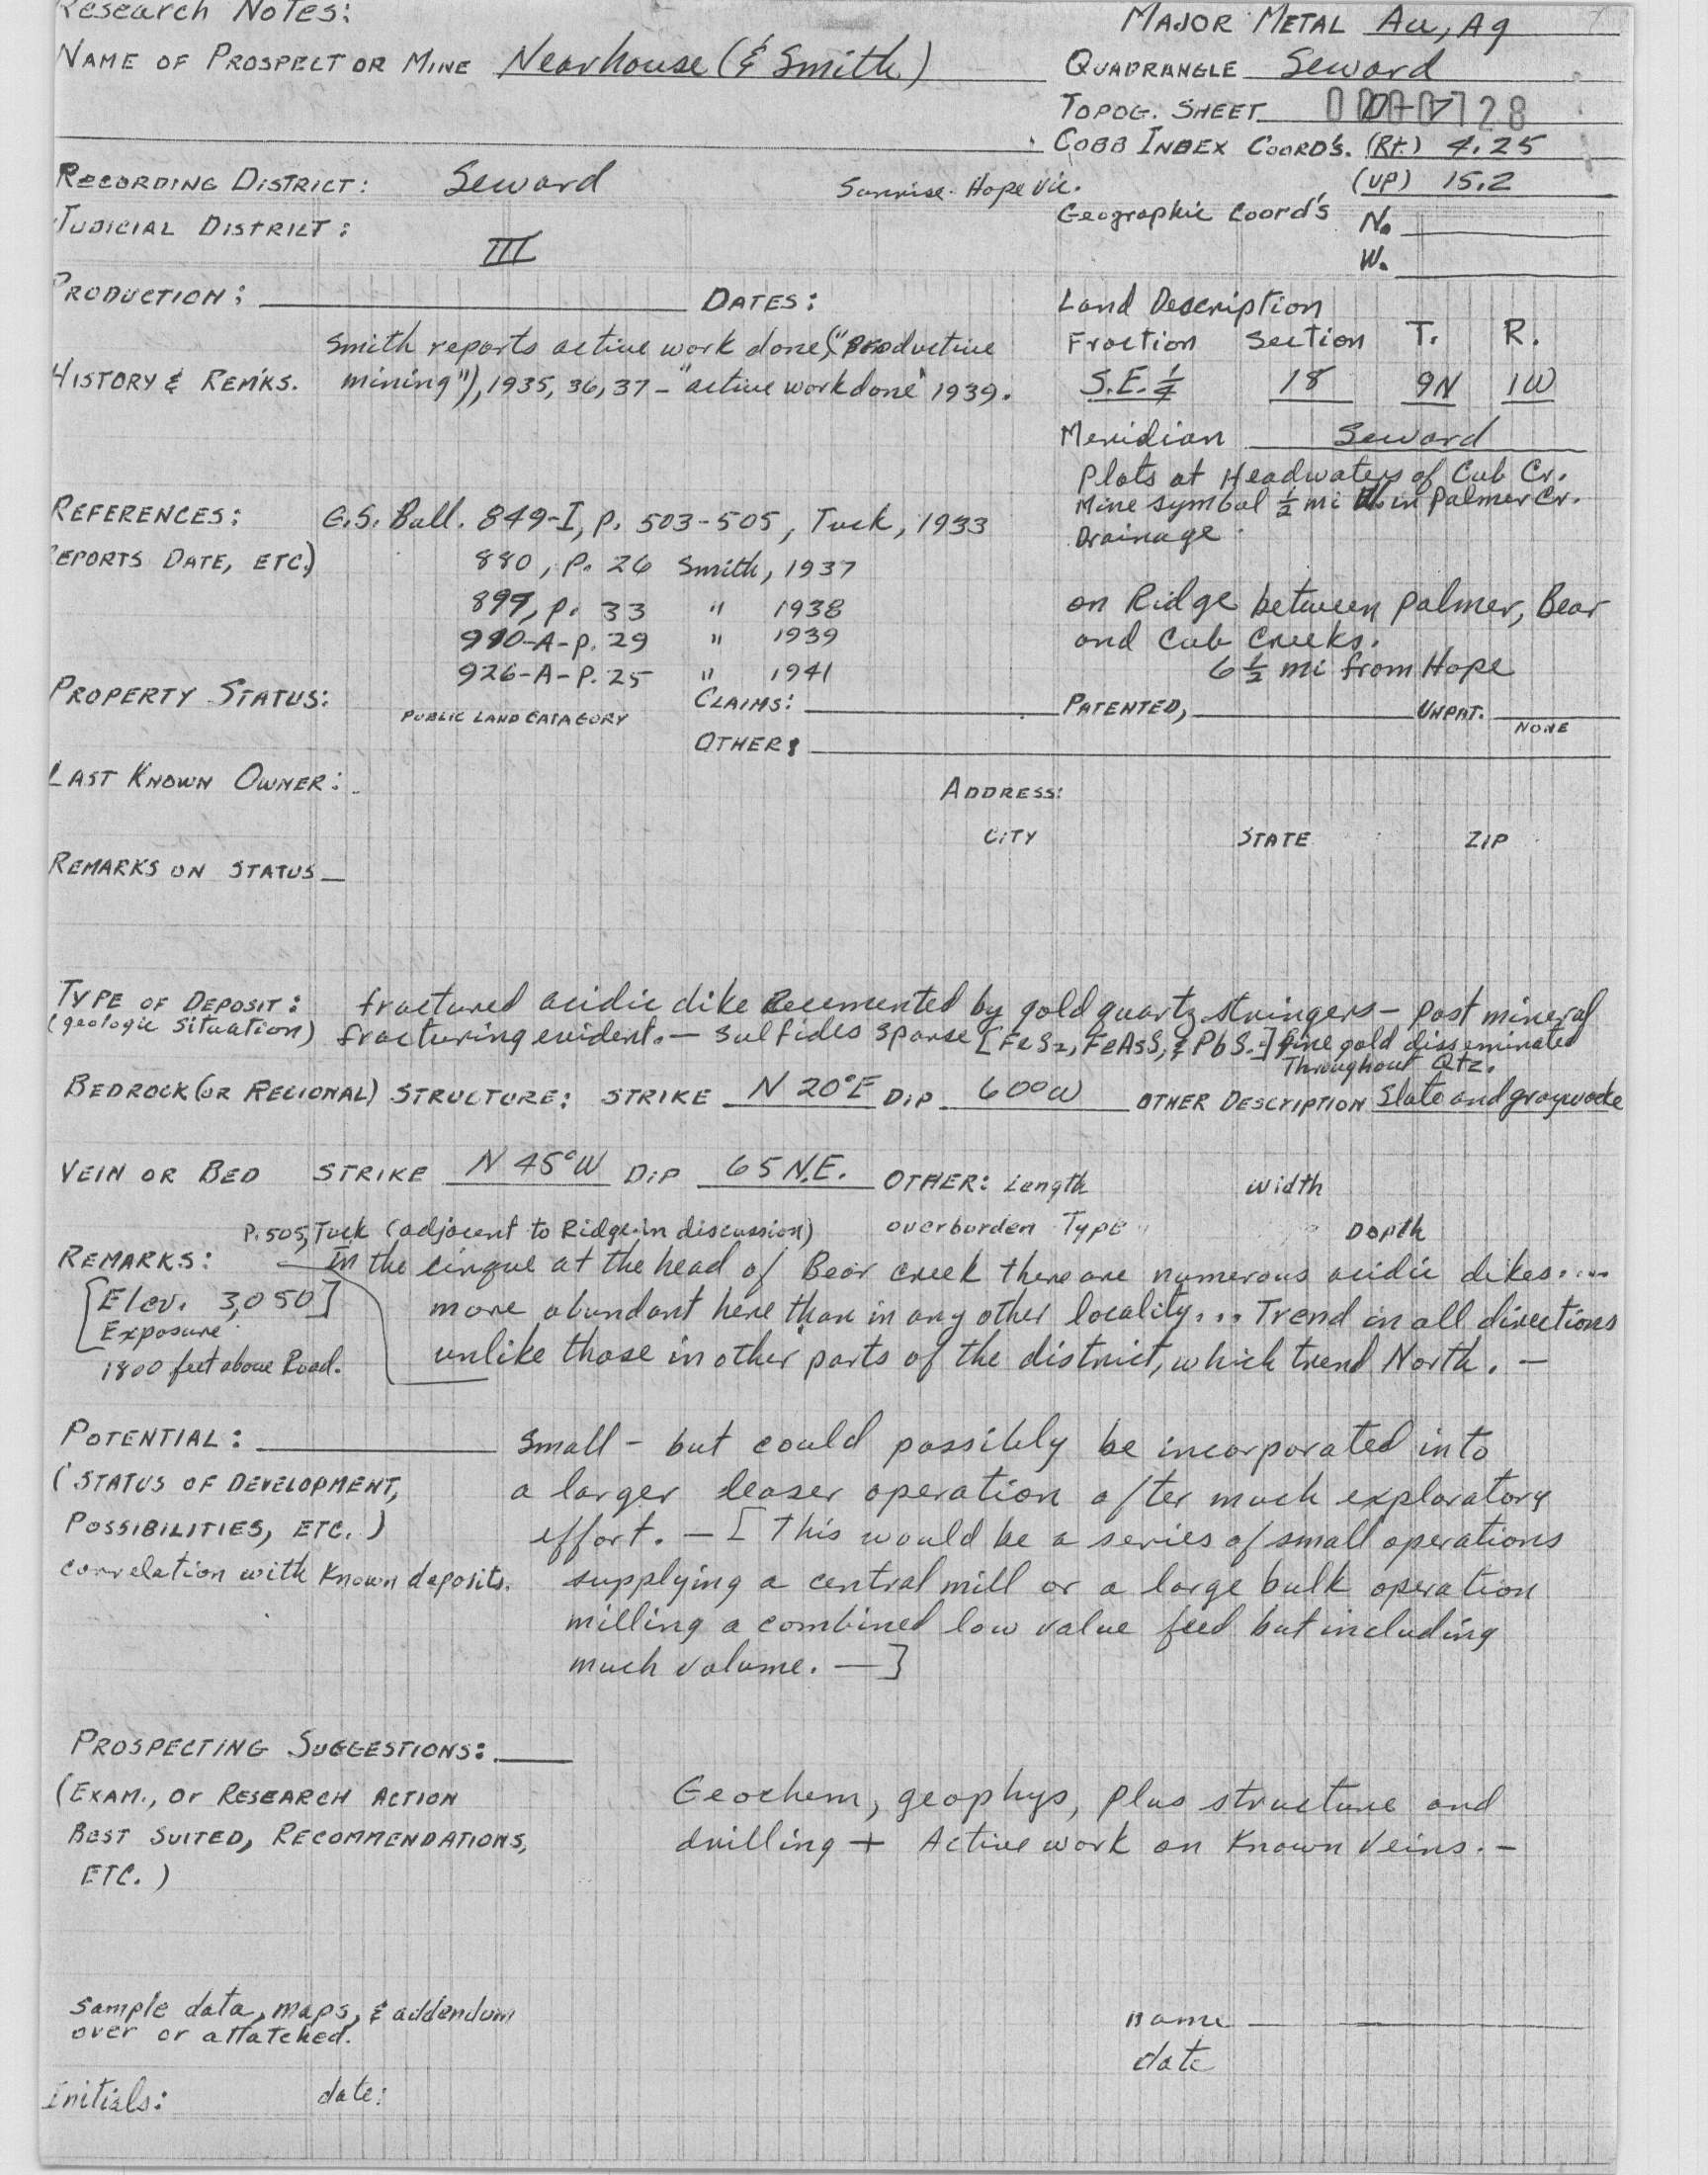 Research Notes:
MAJOR METAL Au, Ag
NAME OF PROSPECT OR MINE Nearhouse (& Smith)
QUADRANGLE Seward
TOPOG. SHEET
COBB INDEX COORD'S. (Rt.) 4.25
(UP) 15.2
RECORDING DISTRICT: Seward Sunrise-Hope Vic.
Geographic Coord's N.
W.
JUDICIAL DISTRICT: III
PRODUCTION: DATES:
Land Description
Fraction Section T. R.
S.E. 1/4 18 9N 1W
Smith reports active work done, ("productive
HISTORY & REM'KS. mining"), 1935, 36, 37 - "active work done" 1939.
Meridian Seward
Plots at Headwaters of Cub Cr.
Mine symbol 1/2 mi W. in Palmer Cr.
Drainage.
REFERENCES: G.S. Bull. 849-I, p. 503-505, Tuck, 1933
REPORTS DATE, ETC.) 880, P. 26 Smith, 1937
897, p. 33 " 1938
910-A-p. 29 " 1939
926-A-P. 25 " 1941
on Ridge between Palmer, Bear
and Cub Creeks.
6 1/2 mi from Hope
PROPERTY STATUS: PUBLIC LAND CATAGORY CLAIMS: PATENTED, UNPAT. NONE
OTHER:
LAST KNOWN OWNER: ADDRESS:
CITY STATE ZIP
REMARKS ON STATUS
TYPE OF DEPOSIT: fractured acidic dike Recemented by gold quartz stringers - post mineral
(geologic situation) fracturing evident. - Sulfides sparse [FeS2, FeAsS, & PbS.-] fine gold disseminated
Throughout Qtz.
BEDROCK (OR REGIONAL) STRUCTURE: STRIKE N 20°E DIP 60° W OTHER DESCRIPTION Slate and graywacke
VEIN OR BED STRIKE N 45°W DIP 65 N.E. OTHER: Length Width
overburden Type Depth
P. 505, Tuck (adjacent to Ridge in discussion)
REMARKS: In the cirque at the head of Bear creek there are numerous acidic dikes....
[Elev. 3,050] more abundant here than in any other locality... Trend in all directions
[Exposure unlike those in other parts of the district, which trend North. -
1800 feet above Road.
POTENTIAL: Small - but could possibly be incorporated into
(STATUS OF DEVELOPMENT, a larger leaser operation after much exploratory
POSSIBILITIES, ETC.) effort. - [This would be a series of small operations
correlation with Known deposits. supplying a central mill or a large bulk operation
milling a combined low value feed but including
much volume. -]
PROSPECTING SUGGESTIONS:
(EXAM., OR RESEARCH ACTION Geochem, geophys, plus structure and
BEST SUITED, RECOMMENDATIONS, drilling + Active work on Known Veins. -
ETC.)
Sample data, maps, & addendum
over or attatched.
name
date
Initials: date: